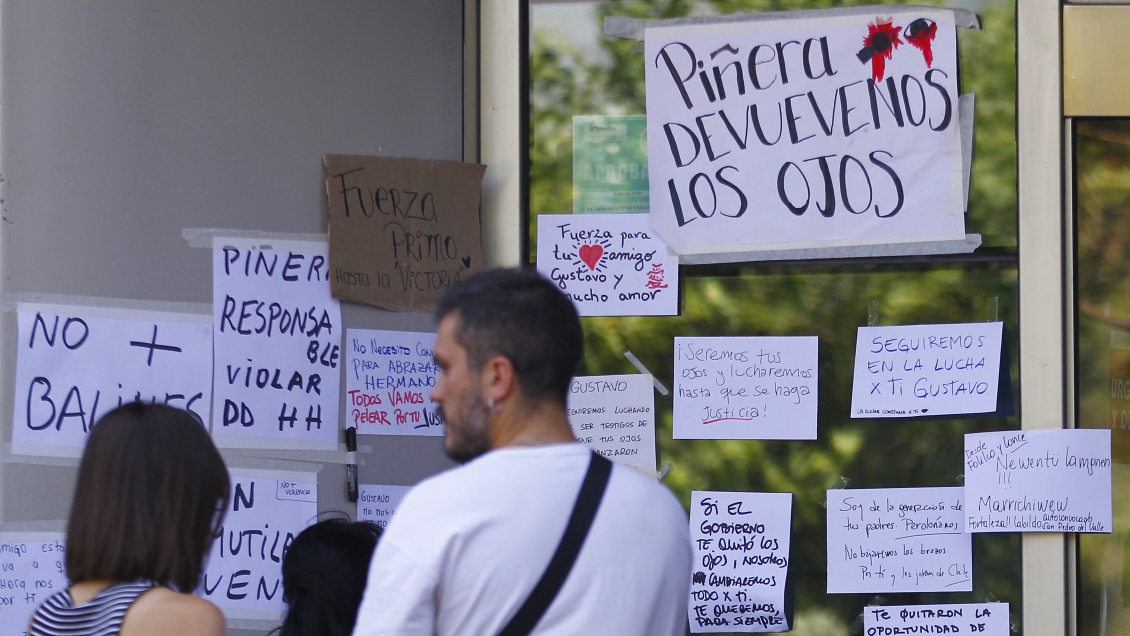 Piñera
DEVUEVENOS
LOS OJOS
APROBA
Fuerza
Primo
HASTA LA VICTORIA
Fuerza para
tu amigo
Gustavo y
mucho amor
PIÑERA
RESPONSA
BLE
VIOLAR
DD HH
NO +
BALINES
NO NECESITO CON
PARA ABRAZAR
HERMANO
TODOS VAMOS
PELEAR POR TU JUS
GUSTAVO
SEGUIREMOS LUCHANDO
SER TESTIGOS DE
QUE TUS OJOS
¡Seremos tus
ojos y lucharemos
hasta que se haga
Justicia!
SEGUIREMOS
EN LA LUCHA
X TI GUSTAVO.
LA LUCHA CONTINUA X TI
Desde
Newentü lamgnen
!!!
Marrichiwew
Fortaleza!! Cabildo autoconvocado
San Pedro del Valle
NO +
VIOLENCIA
MUTILA
GUSTAVO
NO NOS
SI EL
GOBIERNO
TE QUITÓ LOS
OJOS, NOSOTROS
CAMBIAREMOS
TODO X TI.
TE QUEREMOS,
PARA SIEMPRE
Soy de la generación de
tus padres. Perdónanos
No bajaremos los brazos
Por ti y los jóvenes de Chile
AMIGO ESTA
VA A
AHORA NOS
POR TI
TE QUITARON LA
OPORTUNIDAD DE